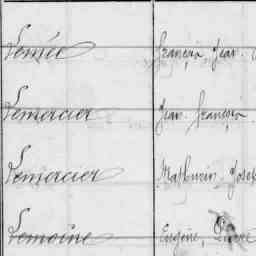 Lemée François Jean
Lemercier Jean François
Lemercier Mathurin Josep
Lemoine Eugène, Pierre